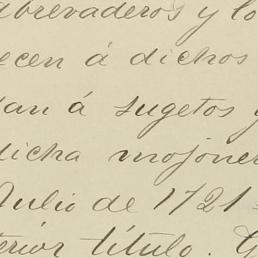 abrevaderos y lo
ecen á dichos
dan á sugetos y
dicha mojoner
Julio de 1721
terior título. G